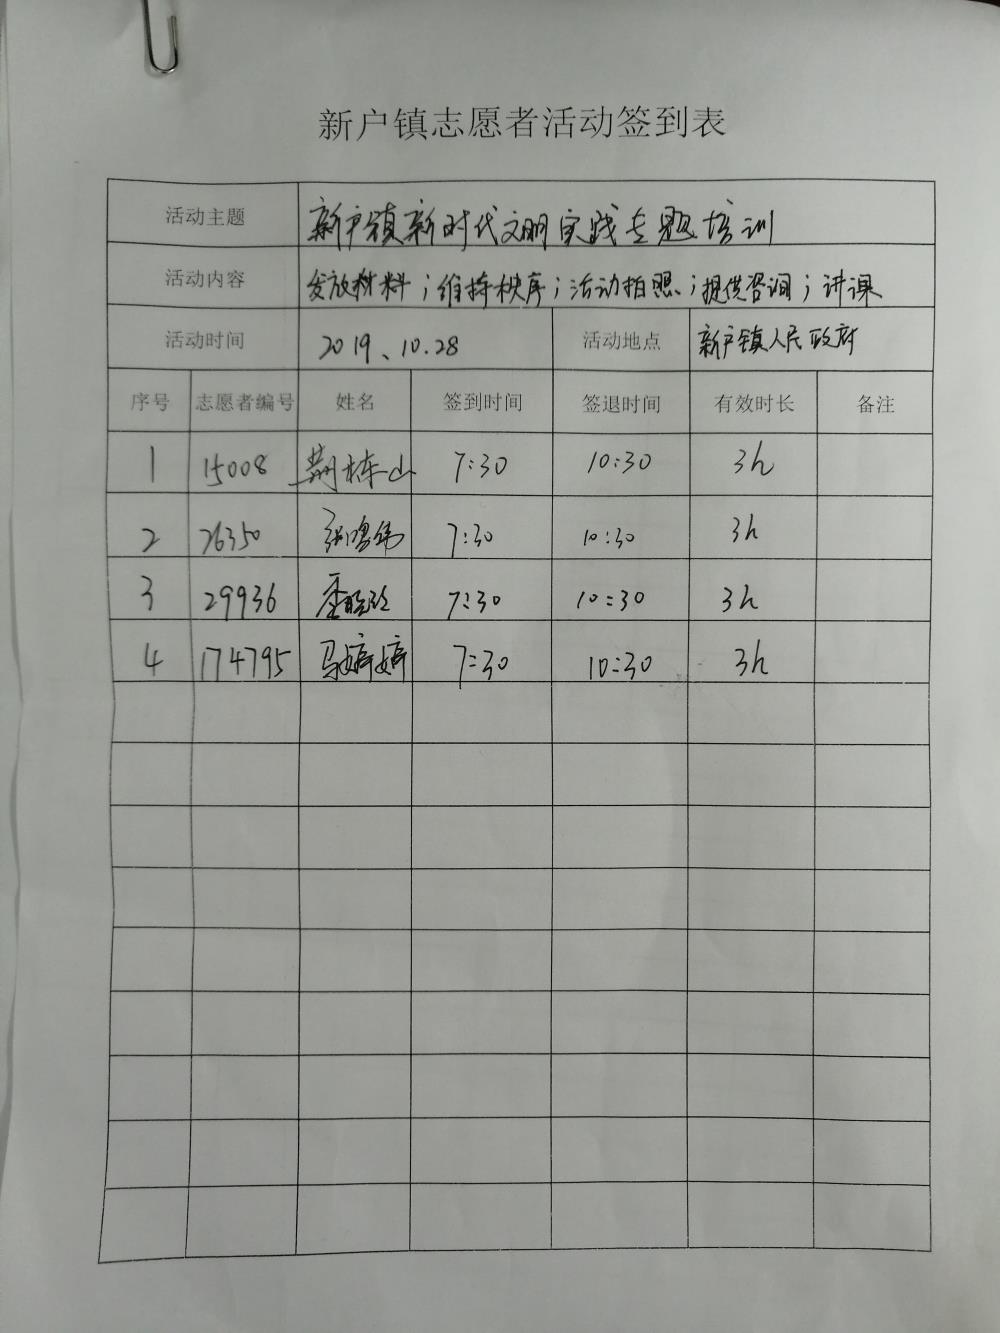 新户镇志愿者活动签到表
活动主题 新户镇新时代文明实践专题培训
活动内容 发放材料；维持秩序；活动拍照、；提供咨询；讲课
活动时间 2019、10.28 活动地点 新户镇人民政府
序号 志愿者编号 姓名 签到时间 签退时间 有效时长 备注
1 15008 荆栋山 7:30 10:30 3h
2 26350 张鸣伟 7:30 10:30 3h
3 29936 7:30 10:30 3h
4 174795 马婷婷 7:30 10:30 3h